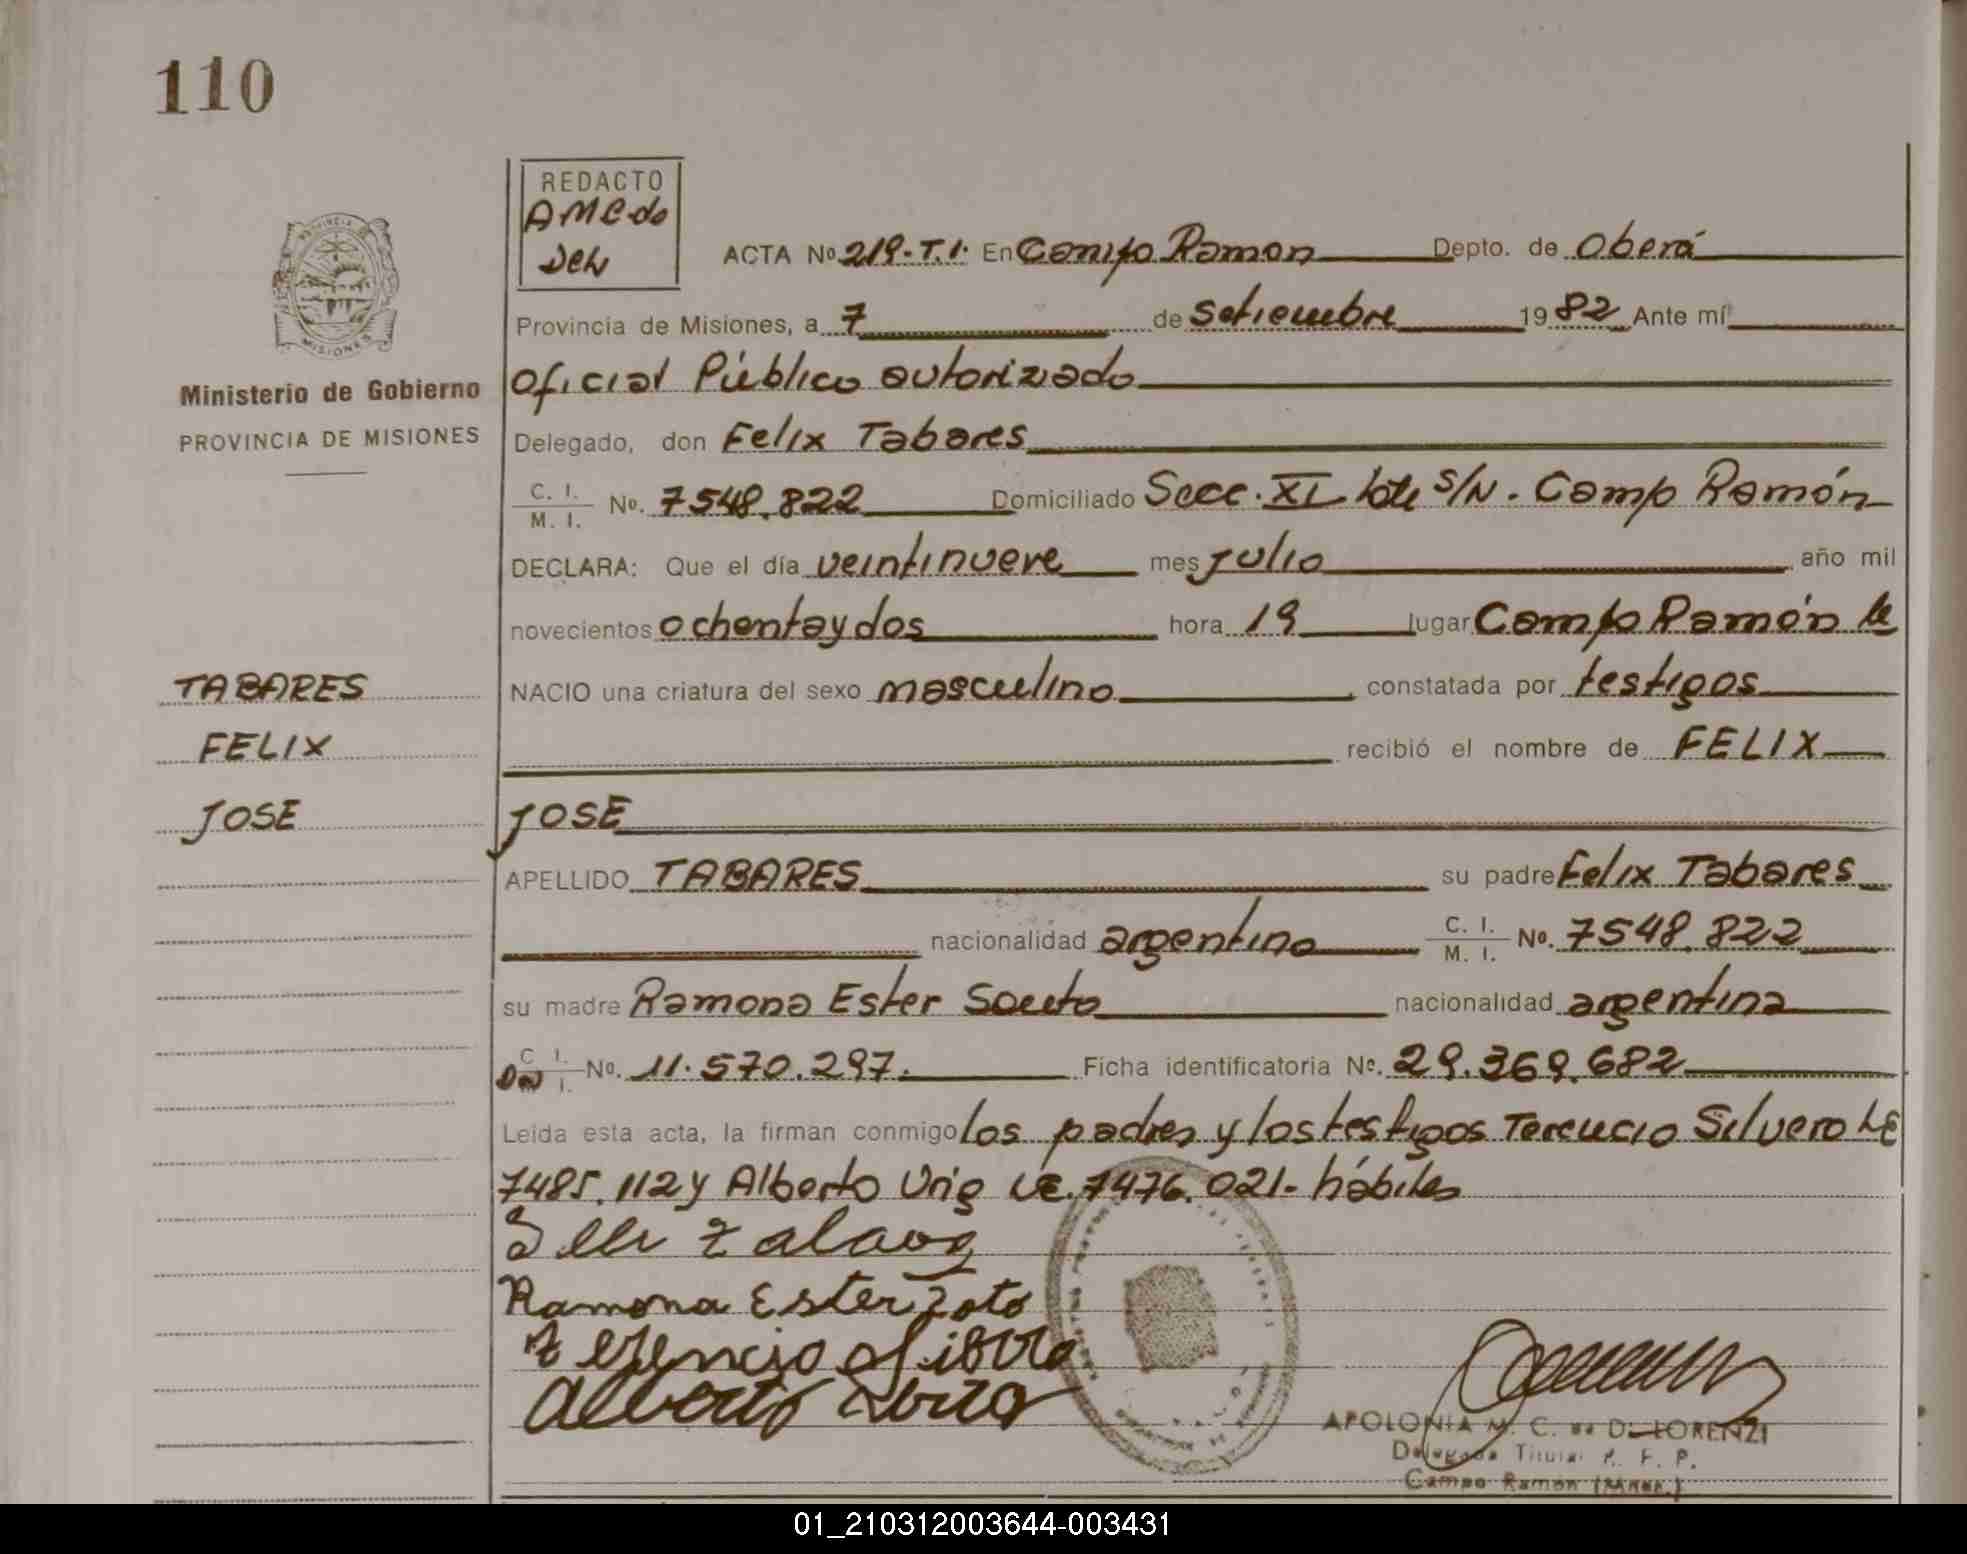 110
REDACTO
AMCdo
Deh
PROVINCIA DE
MISIONES
ACTA No 219-T.I. En Campo Ramon Depto. de Oberá
Provincia de Misiones, a 7 de Setiembre 1982 Ante mí
Ministerio de Gobierno
PROVINCIA DE MISIONES
Oficial Público autorizado
Delegado, don Felix Tabares
C. I. M. I. No. 7548.822 Domiciliado Secc. XI lote S/N. Camp Ramón
DECLARA: Que el día veintinueve mes Julio año mil
novecientos ochentaydos hora 19 lugar Campo Ramón
TABARES
NACIO una criatura del sexo masculino constatada por testigos
FELIX
recibió el nombre de FELIX
JOSE
JOSE
APELLIDO TABARES su padre Felix Tabares
nacionalidad argentino C. I. M. I. No. 7548.822
su madre Ramona Ester Souto nacionalidad argentina
C. I. I. No. 11.570.297. Ficha identificatoria No. 29.369.682
Leida esta acta, la firman conmigo los padres y los testigos Terencio Silvero LE
7485.112 y Alberto LE. 7476.021- hábiles
Ramona Ester Zoto
Alberto
APOLONIA M. C. de DI LORENZI
Delegada Titular R. P.
Campo Ramón
01_210312003644-003431